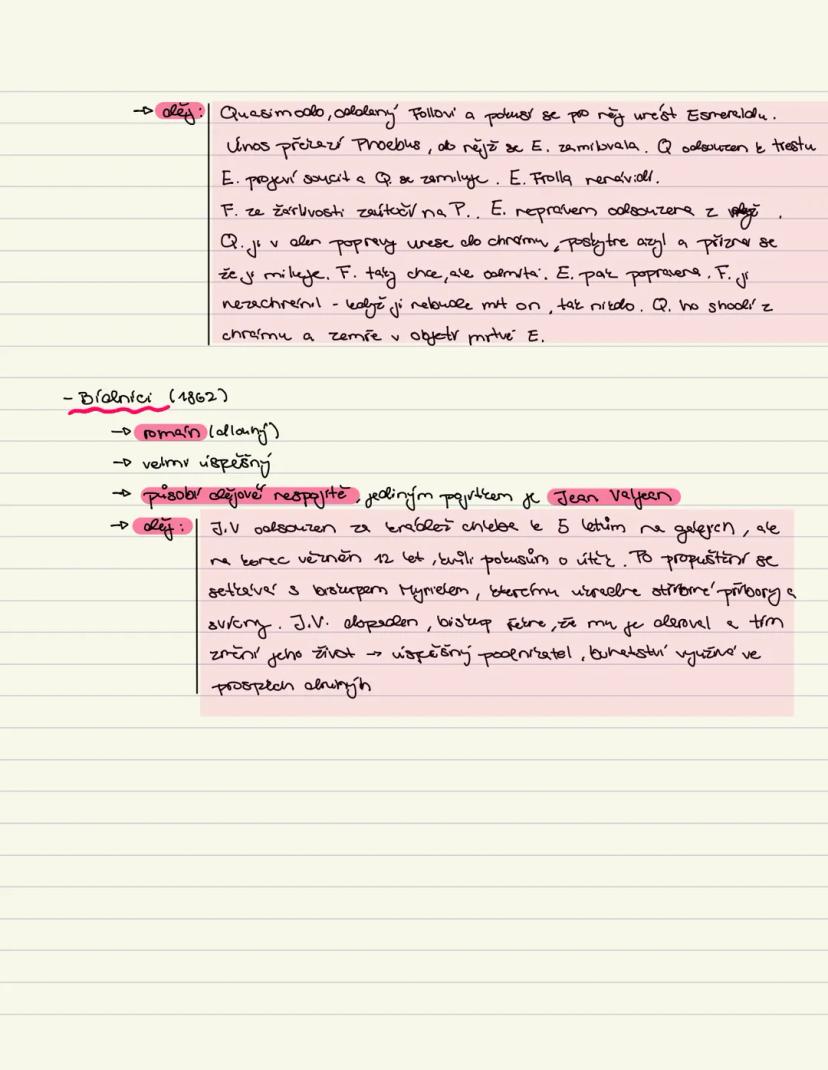 → děj: Quasimodo, oddaný Follovi a pokusí se pro něj unést Esmeraldu.
Únos překazí Phoebus, do nějž se E. zamilovala. Q odsouzen k trestu
E. projeví soucit a Q. se zamiluje. E. Frolla nenávidí.
F. ze žárlivosti zaútočí na P.. E. neprávem odsouzena z .
Q. ji v den popravy unese do chrámu, poskytne azyl a přizná se
že ji miluje. F. taky chce, ale odmítá. E. pak popravena. F. ji
nezachránil - když ji nebude mít on, tak nikdo. Q. ho shodí z
chrámu a zemře v objetí mrtvé E.
- Bídníci (1862)
→ román (dlouhý)
→ velmi úspěšný
→ působí dějově nespojitě, jediným pojítkem je Jean Valjean
→ děj: J.V odsouzen za krádež chleba k 5 letům na galejích, ale
na konec vězněn 12 let, kvůli pokusům o útěk. Po propuštění se
setkává s biskupem Myrielem, kterému ukradne stříbrné příbory a
svícny. J.V. dopaden, biskup řekne, že mu je daroval a tím
změní jeho život → úspěšný podnikatel, bohatství využívá ve
prospěch druhých